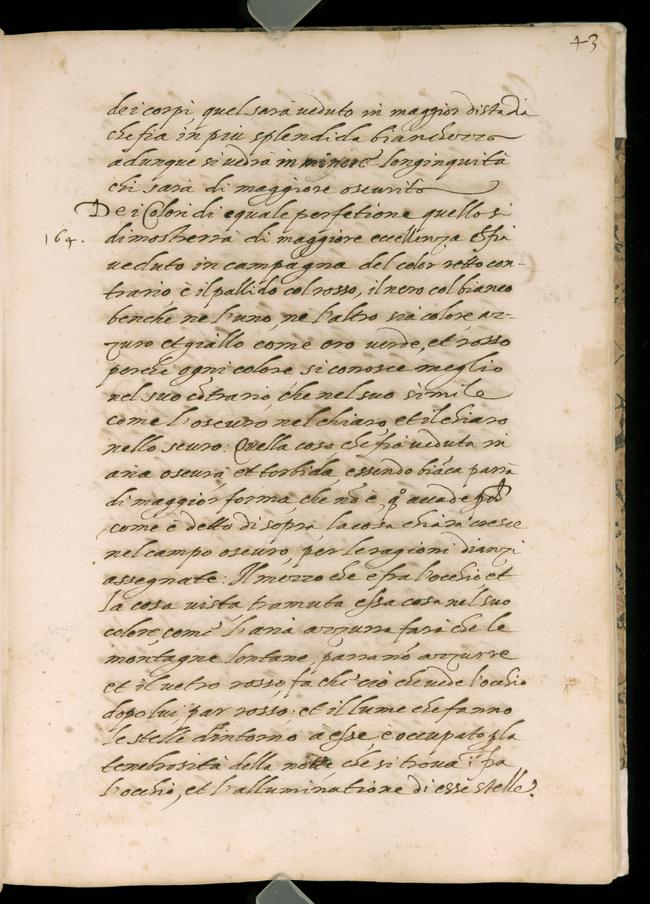 43
dei corpi, quel sarà veduto in maggior distãtia
che fia in più splendida bianchezza
adunque si vedrà in minore longinquità
chi sarà di maggiore oscurità
De i Colori di equale perfetione quello si
164. dimostrerrà di maggiore eccellenza che fia
veduto in campagna del color retto con-
trario, è il pallido col rosso, il nero col bianco
benche ne l'uno, ne l'altro sia colore az-
zuro et giallo come oro verde, et rosso
perche ogni colore si conosce meglio
nel suo cõtrario, che nel suo simile
come l'oscuro nel chiaro, et il chiaro
nello scuro: Quella cosa, che fia veduta in
aria oscura, et torbida, essendo biãca parra
di maggior forma, che nõ è, accade
come è detto di sopra la cosa chiara cresce
nel campo oscuro, per le ragioni dianzi
assegnate: Il mezzo che e fra l'occhio, et
la cosa vista tramuta essa cosa nel suo
colore, come l'aria azzurra farà che le
montagne lontane, parranó azzurre
et il vetro rosso, fa chi ciò che vede l'occhio
dopo lui, par rosso: et il lume che fanno
le stelle d'intorno a esse, e occupato p la
tenebrosità della notte che si trova fra
l'occhio, et l'alluminatione di esse stelle.